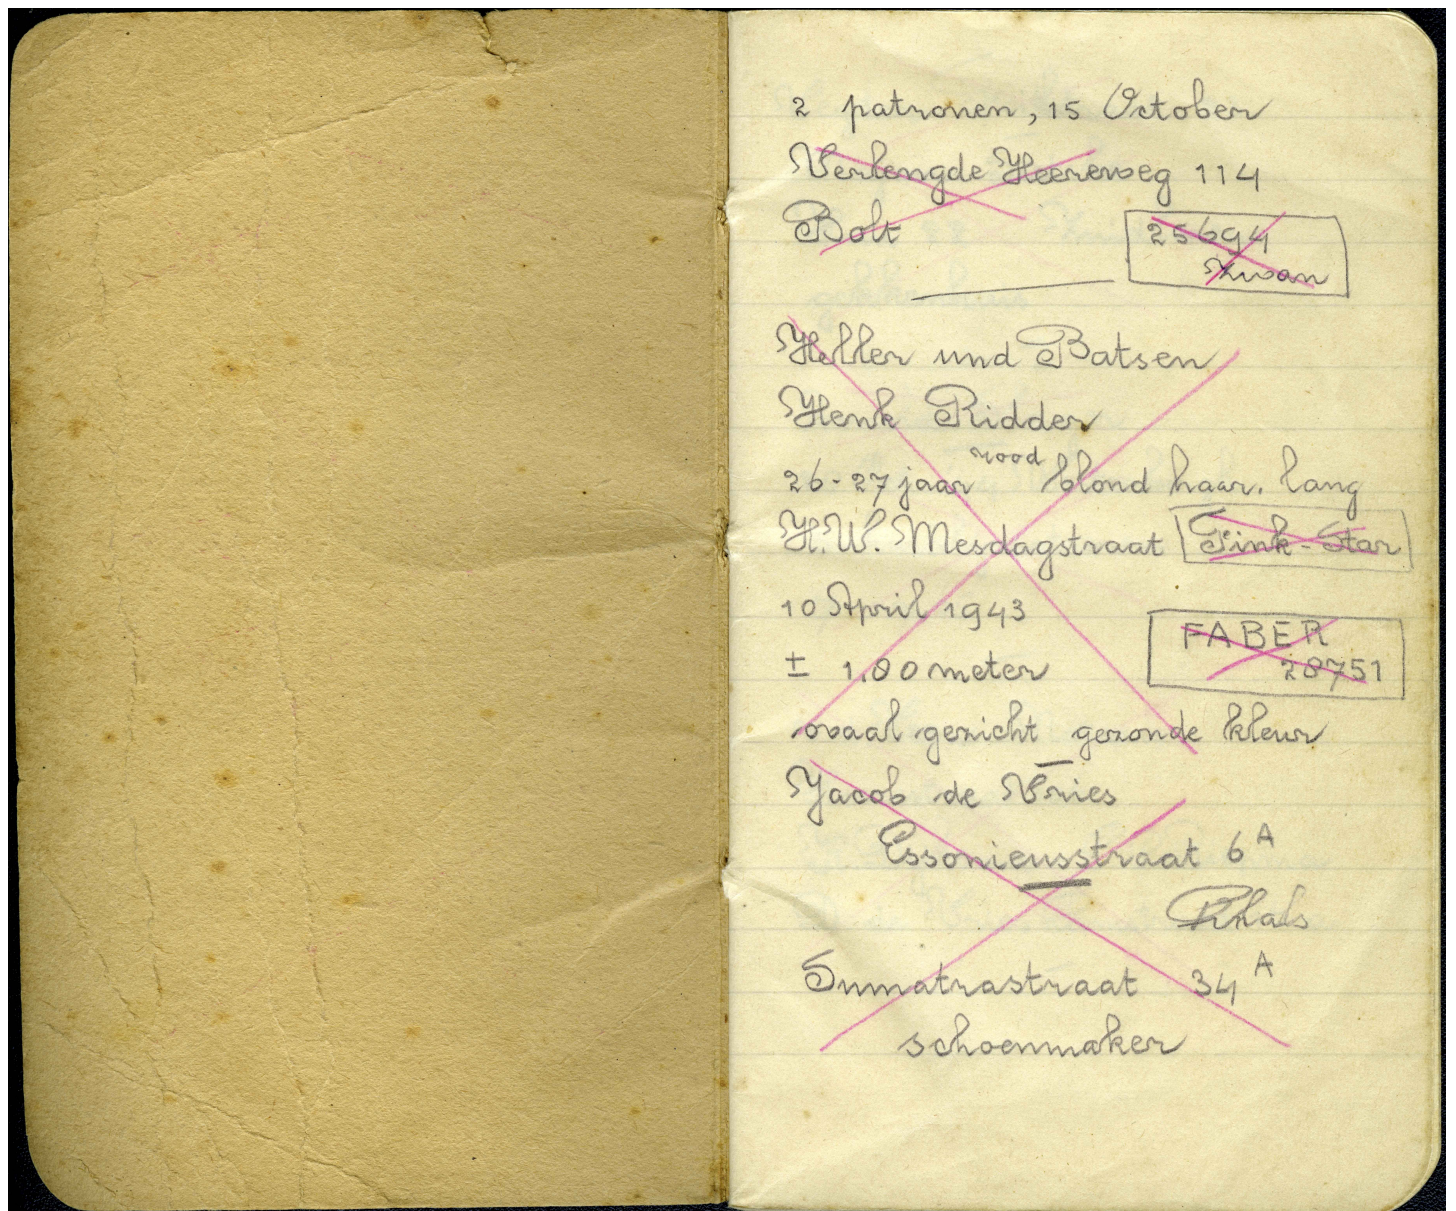 2 patronen, 15 October
Verlengde Heereweg 114
Bolt
25694
Zwan
Heller und Batsen
Henk Ridder
26-27 jaar rood blond haar. lang
H.W. Mesdagstraat
10 April 1943
FABER
± 1.80 meter
28751
ovaal gezicht gezonde kleur
Jacob de Vries
Essonieusstraat 6A
Sumatrastraat 34A
schoenmaker